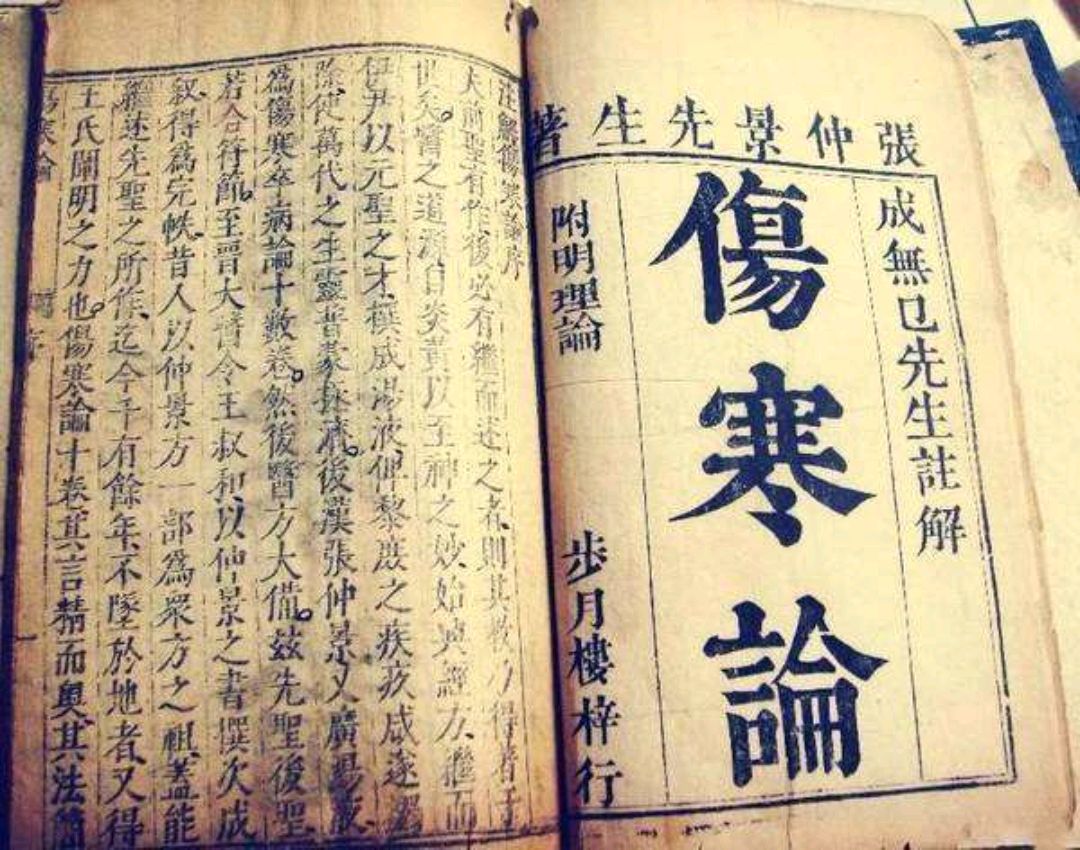 張仲景先生著
成無已先生註解
傷寒論
附明理論
步月樓梓行
註解傷寒論序
夫前聖有作後必有繼而述之者、則其教乃得著于
世矣。醫之道源自炎黃以至神之妙始興經方、繼而
伊尹以元聖之才、撰成湯液、俾黎庶之疾疢咸遂蠲
除、使萬代之生靈普蒙拯濟。後漢張仲景又廣湯液
為傷寒卒病論十數卷。然後醫方大備。茲先聖後聖
若合符節。至晉大醫令王叔和以仲景之書撰次成
叙、得為完帙、昔人以仲景方一部為眾方之祖、蓋能
繼述先聖之所作、迄今千有餘年、不墜於地者、又得
王氏闡明之力也。傷寒論十卷、其言精而奧、其法簡
傷寒論